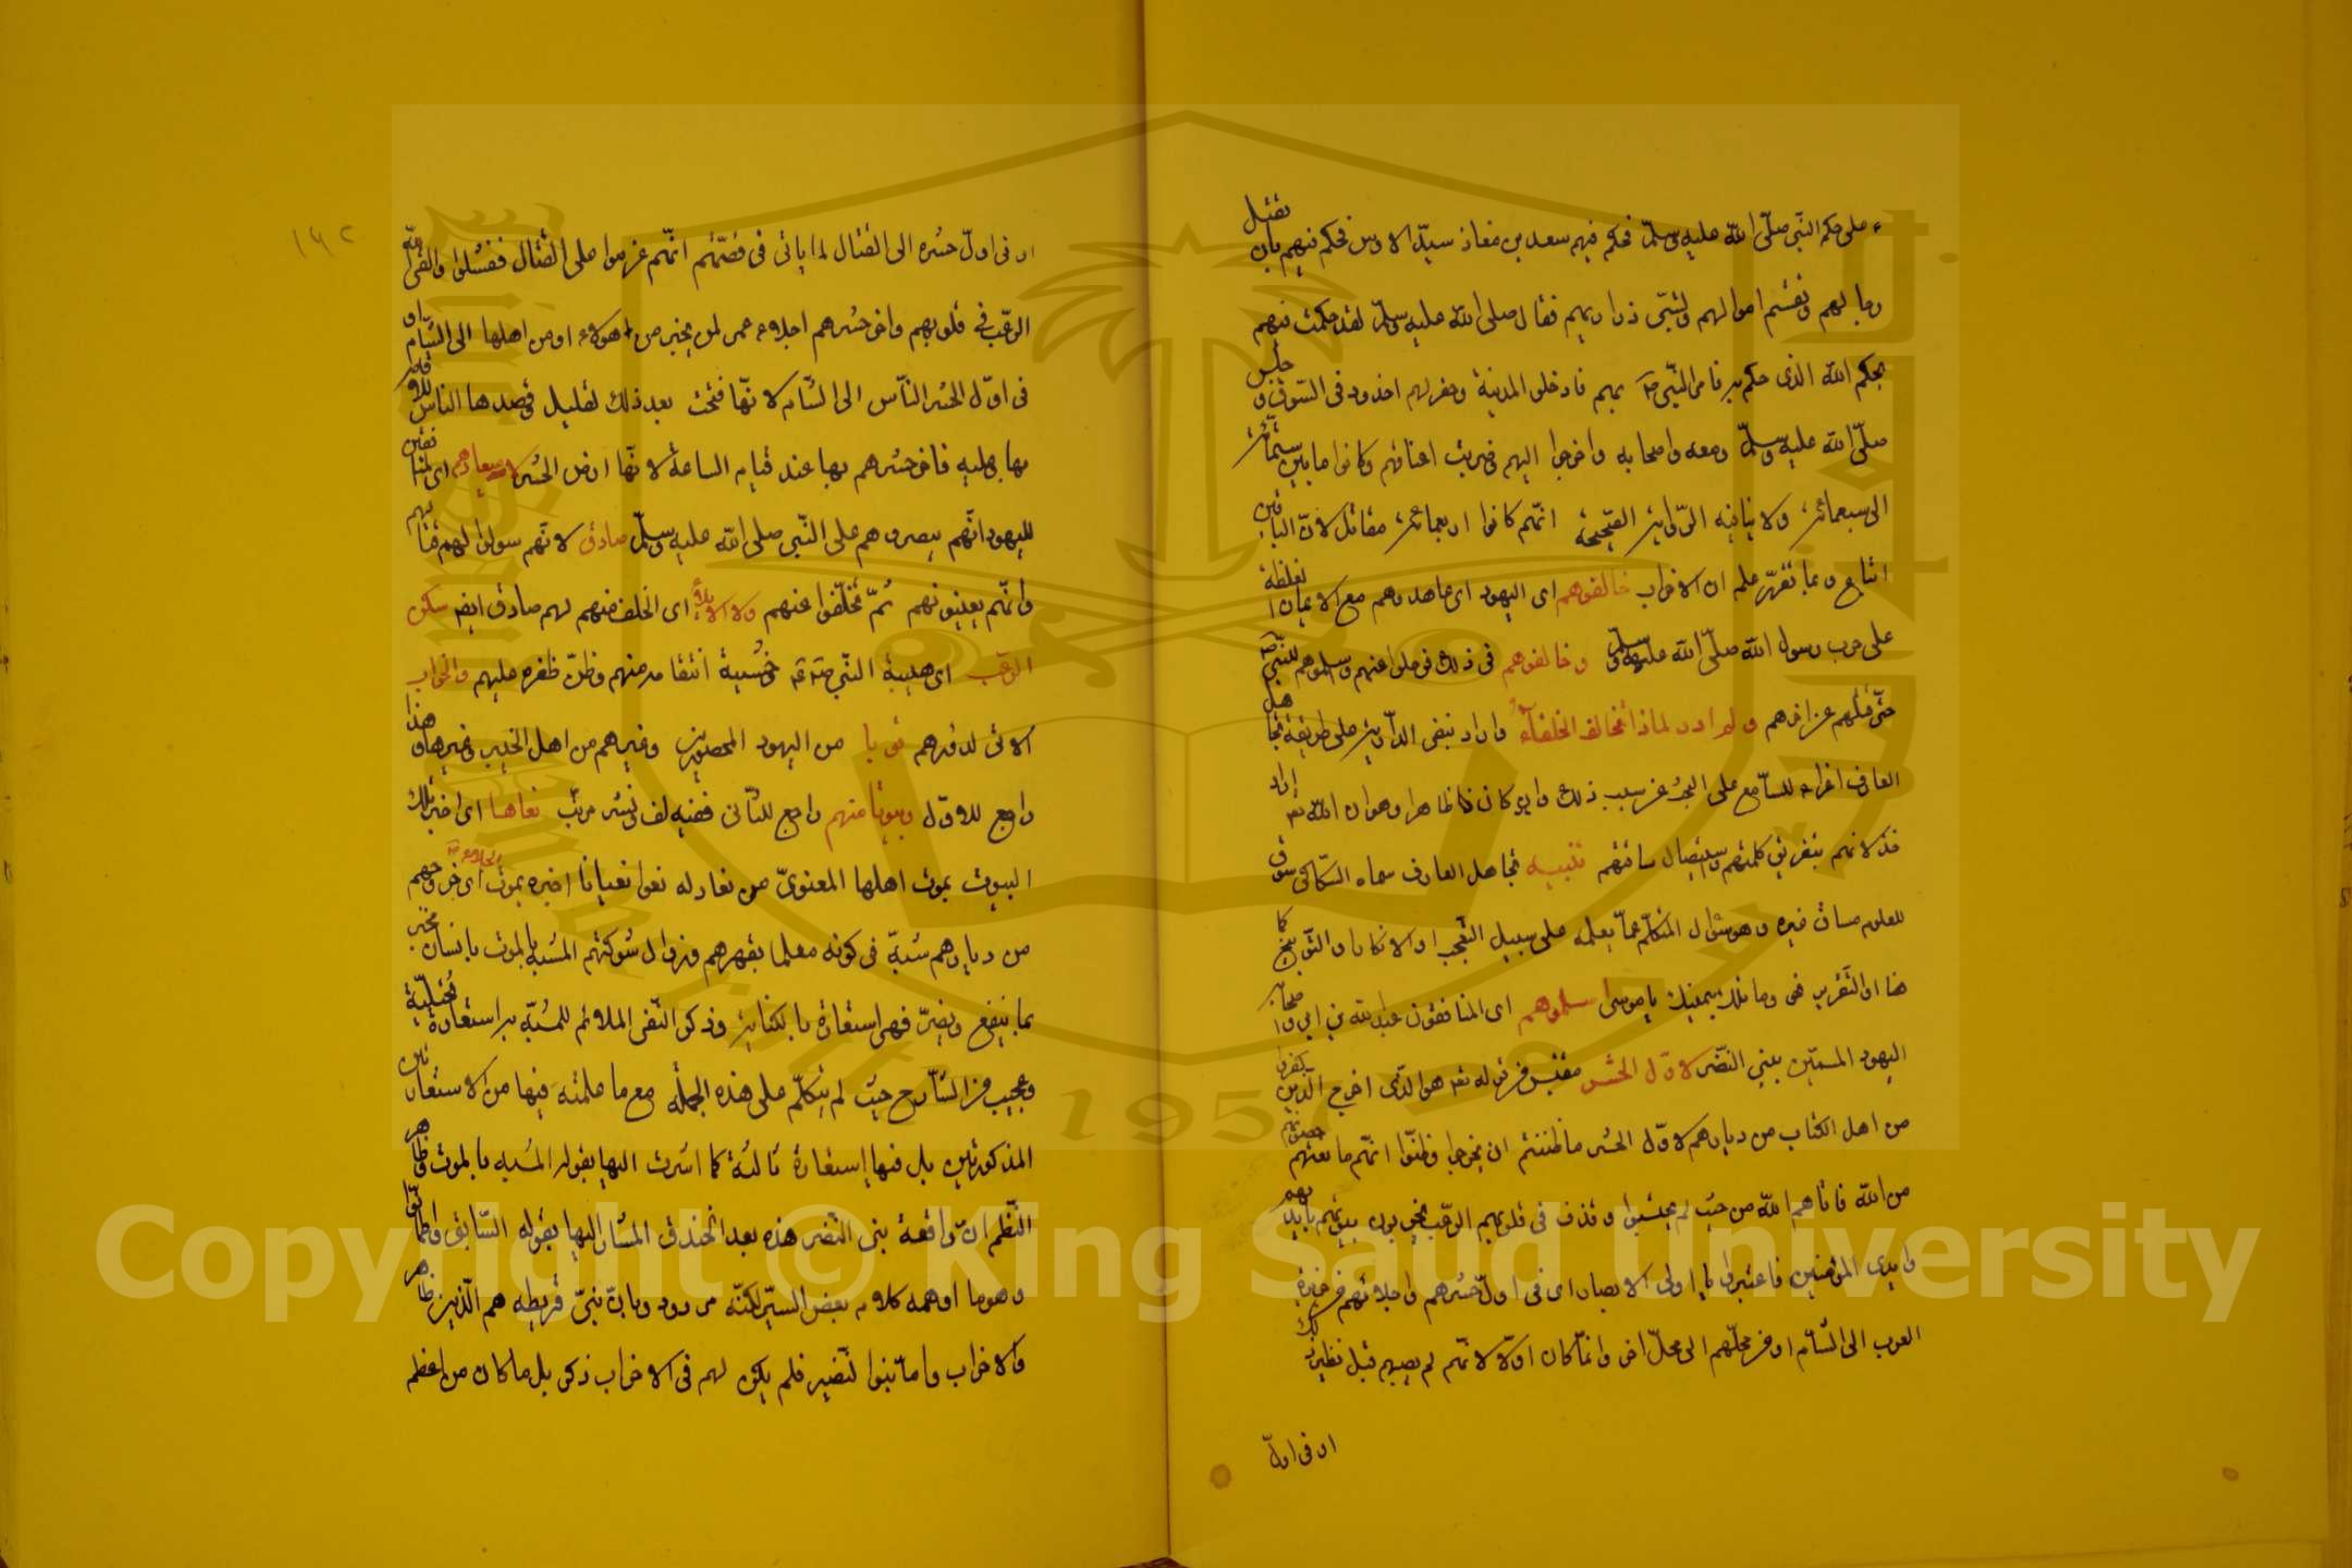 على حكم النبي صلى الله عليه وسلم فحكم فيهم سعد بن معاذ سيد الاوس فحكم فيهم بان تقتل
رجالهم وتقسم اموالهم وتسبى ذراريهم فقال صلى الله عليه وسلم لقد حكمت فيهم
بحكم الله الذى حكم به فامر النبي صم بهم فادخلوا المدينة وحفر لهم اخدود فى السوق وجلس
صلى الله عليه وسلم ومعه واصحابه واخرجوا اليهم فضربت اعناقهم وكانوا ما بين ستمائة
الى سبعمائة ولا ينافيه الرواية الصحيحة انهم كانوا اربعمائة مقاتل لان الباقين
اتباع وبما تقرر علم ان الاحزاب خالفوهم اى اليهود اى عاهدوهم مع الايمان المغلظة
على حرب رسول الله صلى الله عليه وسلم وخالفوهم فى ذلك فرحلوا عنهم وسلموهم للنبي صم
حتى قتلهم عن اخرهم ولم ادر لماذا تخالف الخلفاء واراد بنفى الدراية على طريقة تجاهل
العارف اغراء للسامع على البحث عن سبب ذلك وان كان ظاهرا وهو ان الله تع اراد
خذلانهم بتفريق كلمتهم واستيصال سافتهم تنبيه تجاهل العارف سماه السكاكى سوق
المعلوم مساق غيره وهو سؤال المتكلم عما يعلمه على سبيل التعجب او الانكار او التوبيخ كما
هنا او التقرير نحو وما تلك بيمينك يا موسى اسلموهم اى المنافقون عبد الله بن ابي واصحابه
اليهود المسمين ببنى النضر لاول الحشر مقتبس من قوله تع هو الذى اخرج الذين كفروا
من اهل الكتاب من ديارهم لاول الحشر ما ظننتم ان يخرجوا وظنوا انهم ما نعتهم حصونهم
من الله فاتاهم الله من حيث لم يحتسبوا وقذف فى قلوبهم الرعب يخربون بيوتهم بايديهم
وايدى المؤمنين فاعتبروا يا اولى الابصار اى فى اول حشرهم واجلائهم من جزيرة
العرب الى الشام او من محلهم الى محل اخر وانما كان اولا لانهم لم يصبهم قبل نظير ذلك
او فى اول
١٩٢
او فى اول حشره الى القتال لما ياتى فى قصتهم انهم عزموا على القتال ففشلوا والقى الله
الرعب فى قلوبهم واخر حشرهم اجلاء عمر لمن بخيبر من هؤلاء او من اهلها الى الشام او
فى اول الحشر الناس الى الشام لانها فتحت بعد ذلك لقليل قصدها الناس
بها عليه فاخر حشرهم بها عند قيام الساعة لانها ارض الحشر لا ميعادهم اى
لليهود انهم ينصروهم على النبي صلى الله عليه وسلم صادق لانهم سولوا لهم
وانهم يعينونهم ثم تخلفوا عنهم ولا الايلاء اى الحلف منهم لهم صادق ايضا سكن
الرعب اى هيبة النبي صم وخشية انتقامه منهم وظن ظفره عليهم والخراب
الاتى لدورهم قوبا من اليهود المحصورين وغيرهم من اهل الخيبر وغيرها وهذا
راجع للاول وبيوتا منهم راجع للثانى ففيه لف ونشر مرتب نعاها اى اخبر بتلك
البيوت بموت اهلها المعنوى من نعاه له نعوا نعيانا اخبره بموت اى خروجهم الجلاء
من ديارهم شبه فى كونه معلما بقهرهم وزوال شوكتهم المشبه بالموت بانسان مخبر
بما ينفع ويضر فهى استعارة بالكناية وذكر النعى الملائم للمشبه به استعارة تخييلية
وعجيب من الشارح حيث لم يتكلم على هذه الجملة مع ما علمته فيها من الاستعارتين
المذكورتين بل فيها استعارة ثالثة كما اشرت اليها بقولى المشبه بالموت وظاهر
النظم ان واقعة بنى النضر هذه بعد الخندق المشار اليها بقوله السابق
وهو ما اوهمه كلام بعض السير لكنه مردود وبان بنى قريظة هم الذين ظاهروا
والاحزاب واما بنوا لنضير فلم يكن لهم فى الاحزاب ذكر بل ما كان من اعظم
Copyright © King Saud University
1957